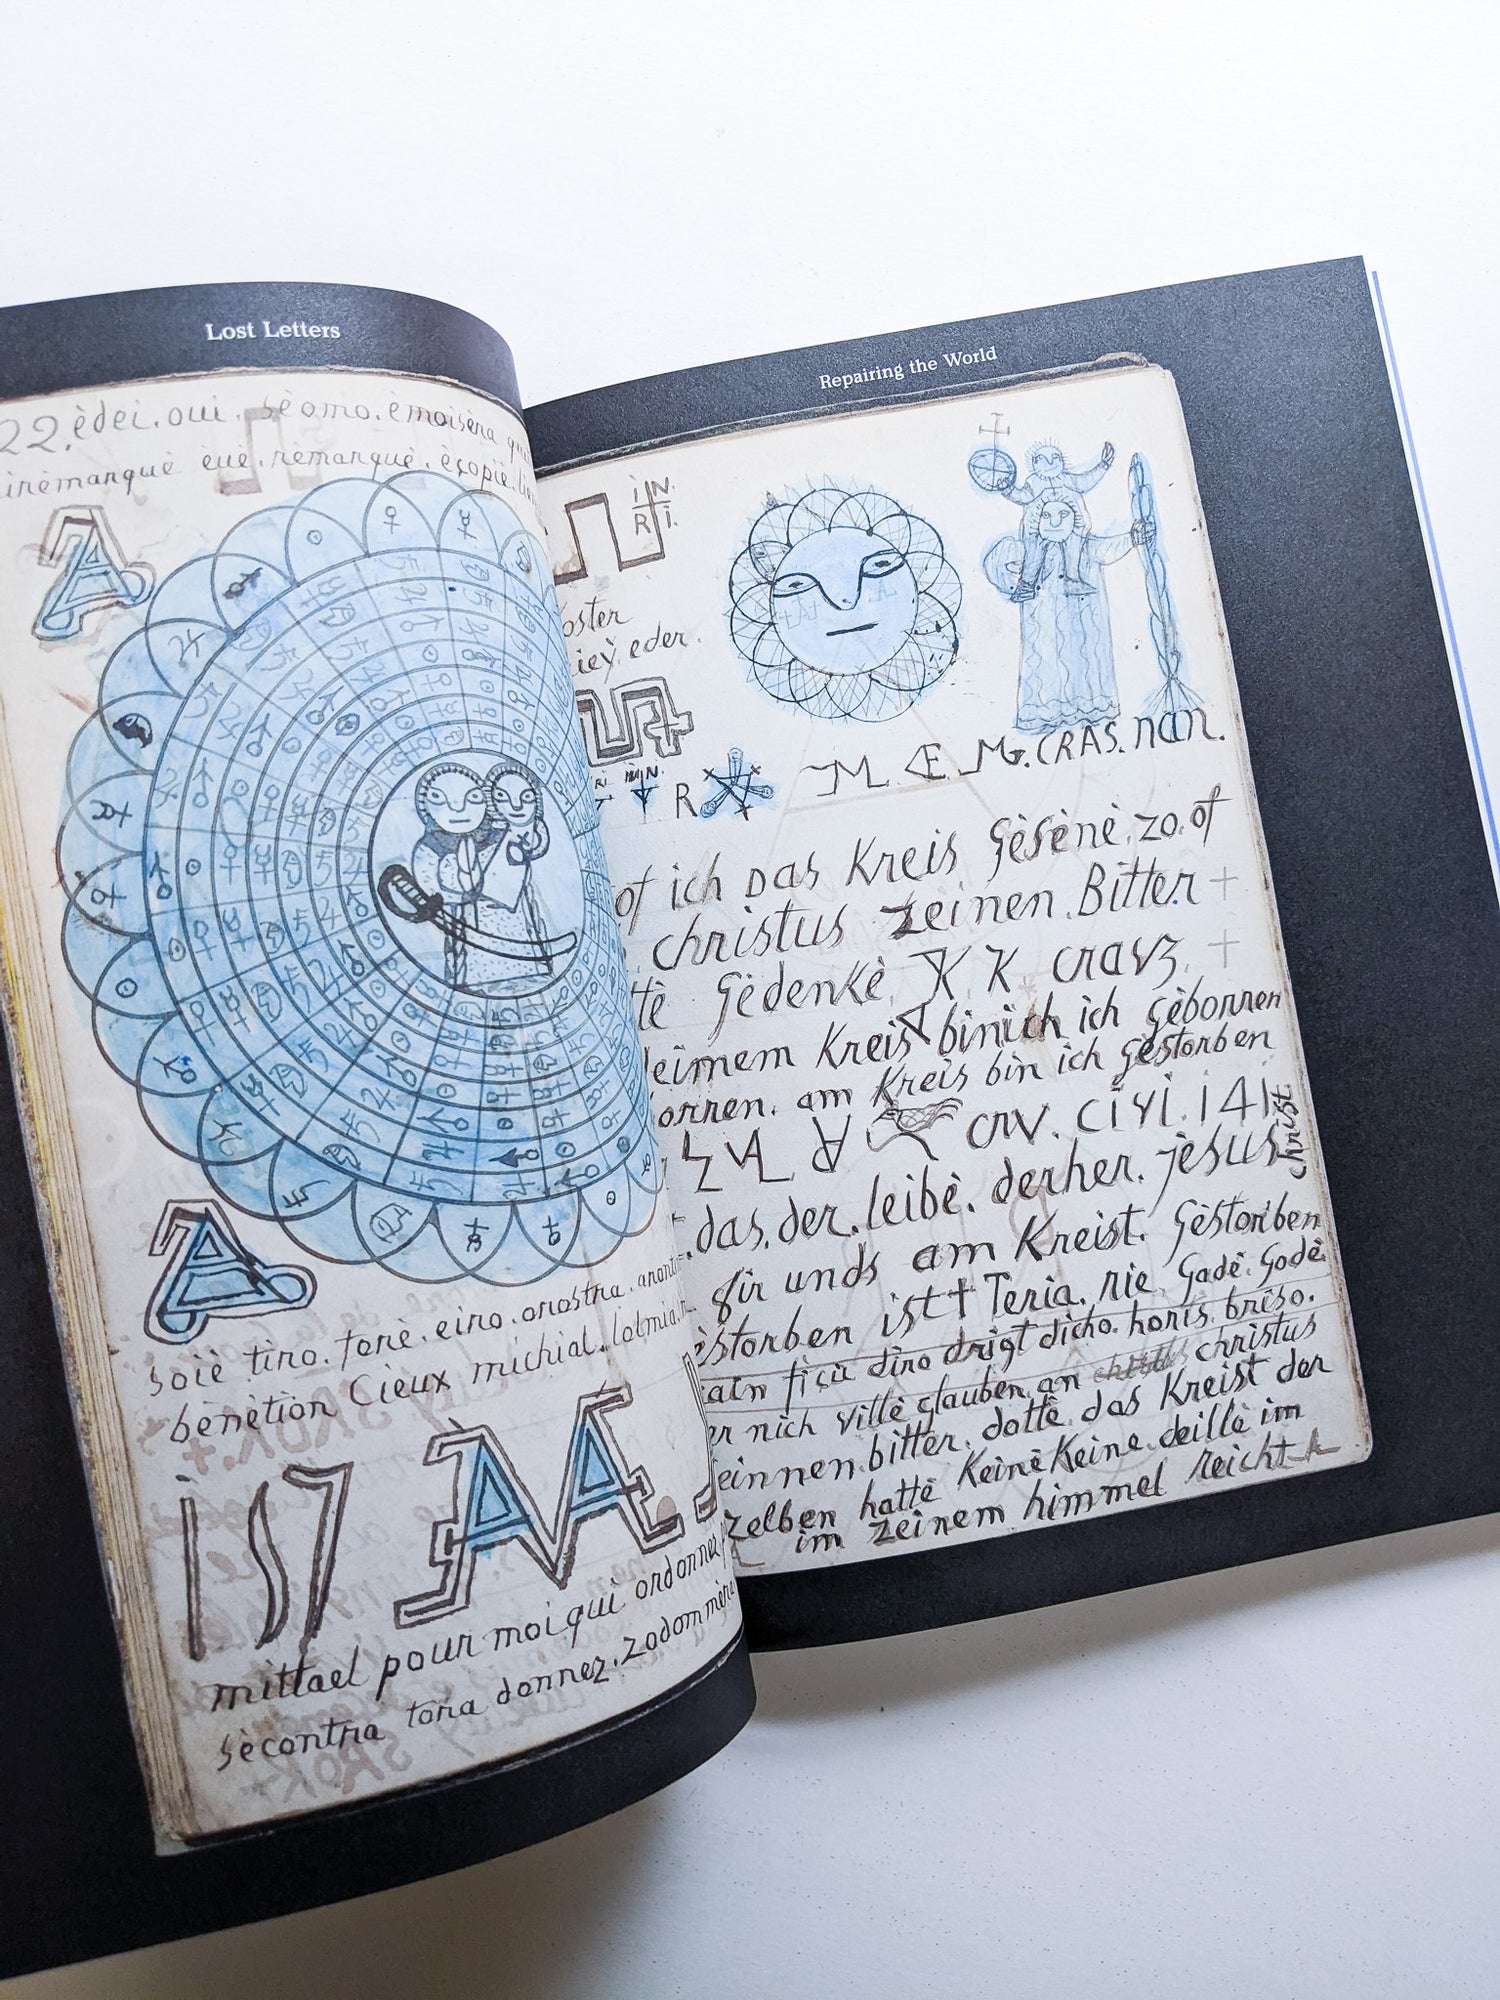 Lost Letters
22. èdei. oui. sè omo. èmoisèra
irèmarquè èuè. rèmarquè. ècopiè.
A
A
soiè tiro. torè. eiro. orostra.
bènètion Cieux michial. lolmia.
is7 AA
mittael pour moi qui ordonnez
sècontra tora donnez. zodommèra
Repairing the World
iN.
Ri.
oster
iey. eder.
R
M. Æ. M. CRAS. nan.
of ich das Kreis Gèsènè. zo. of
christus zeinen. Bitter +
tè Gèdenkè K K cravz. +
eimem Kreis binich ich gèborren
orren. am Kreis bin ich gèstorben
crv. civi. i 41.
das. der. leibè. derher. jèsus christ
fir unds am Kreist. Gèstorben
èstorben ist + Teria. rie. Gadè. Godè.
ain fisù diro drigt dicho. horis. briso.
er nich villè glauben. an christus
einnen. bitter. dottè. das Kreist der
zelben hattè Keinè Keine. deillè im
im zeinem himmel reicht